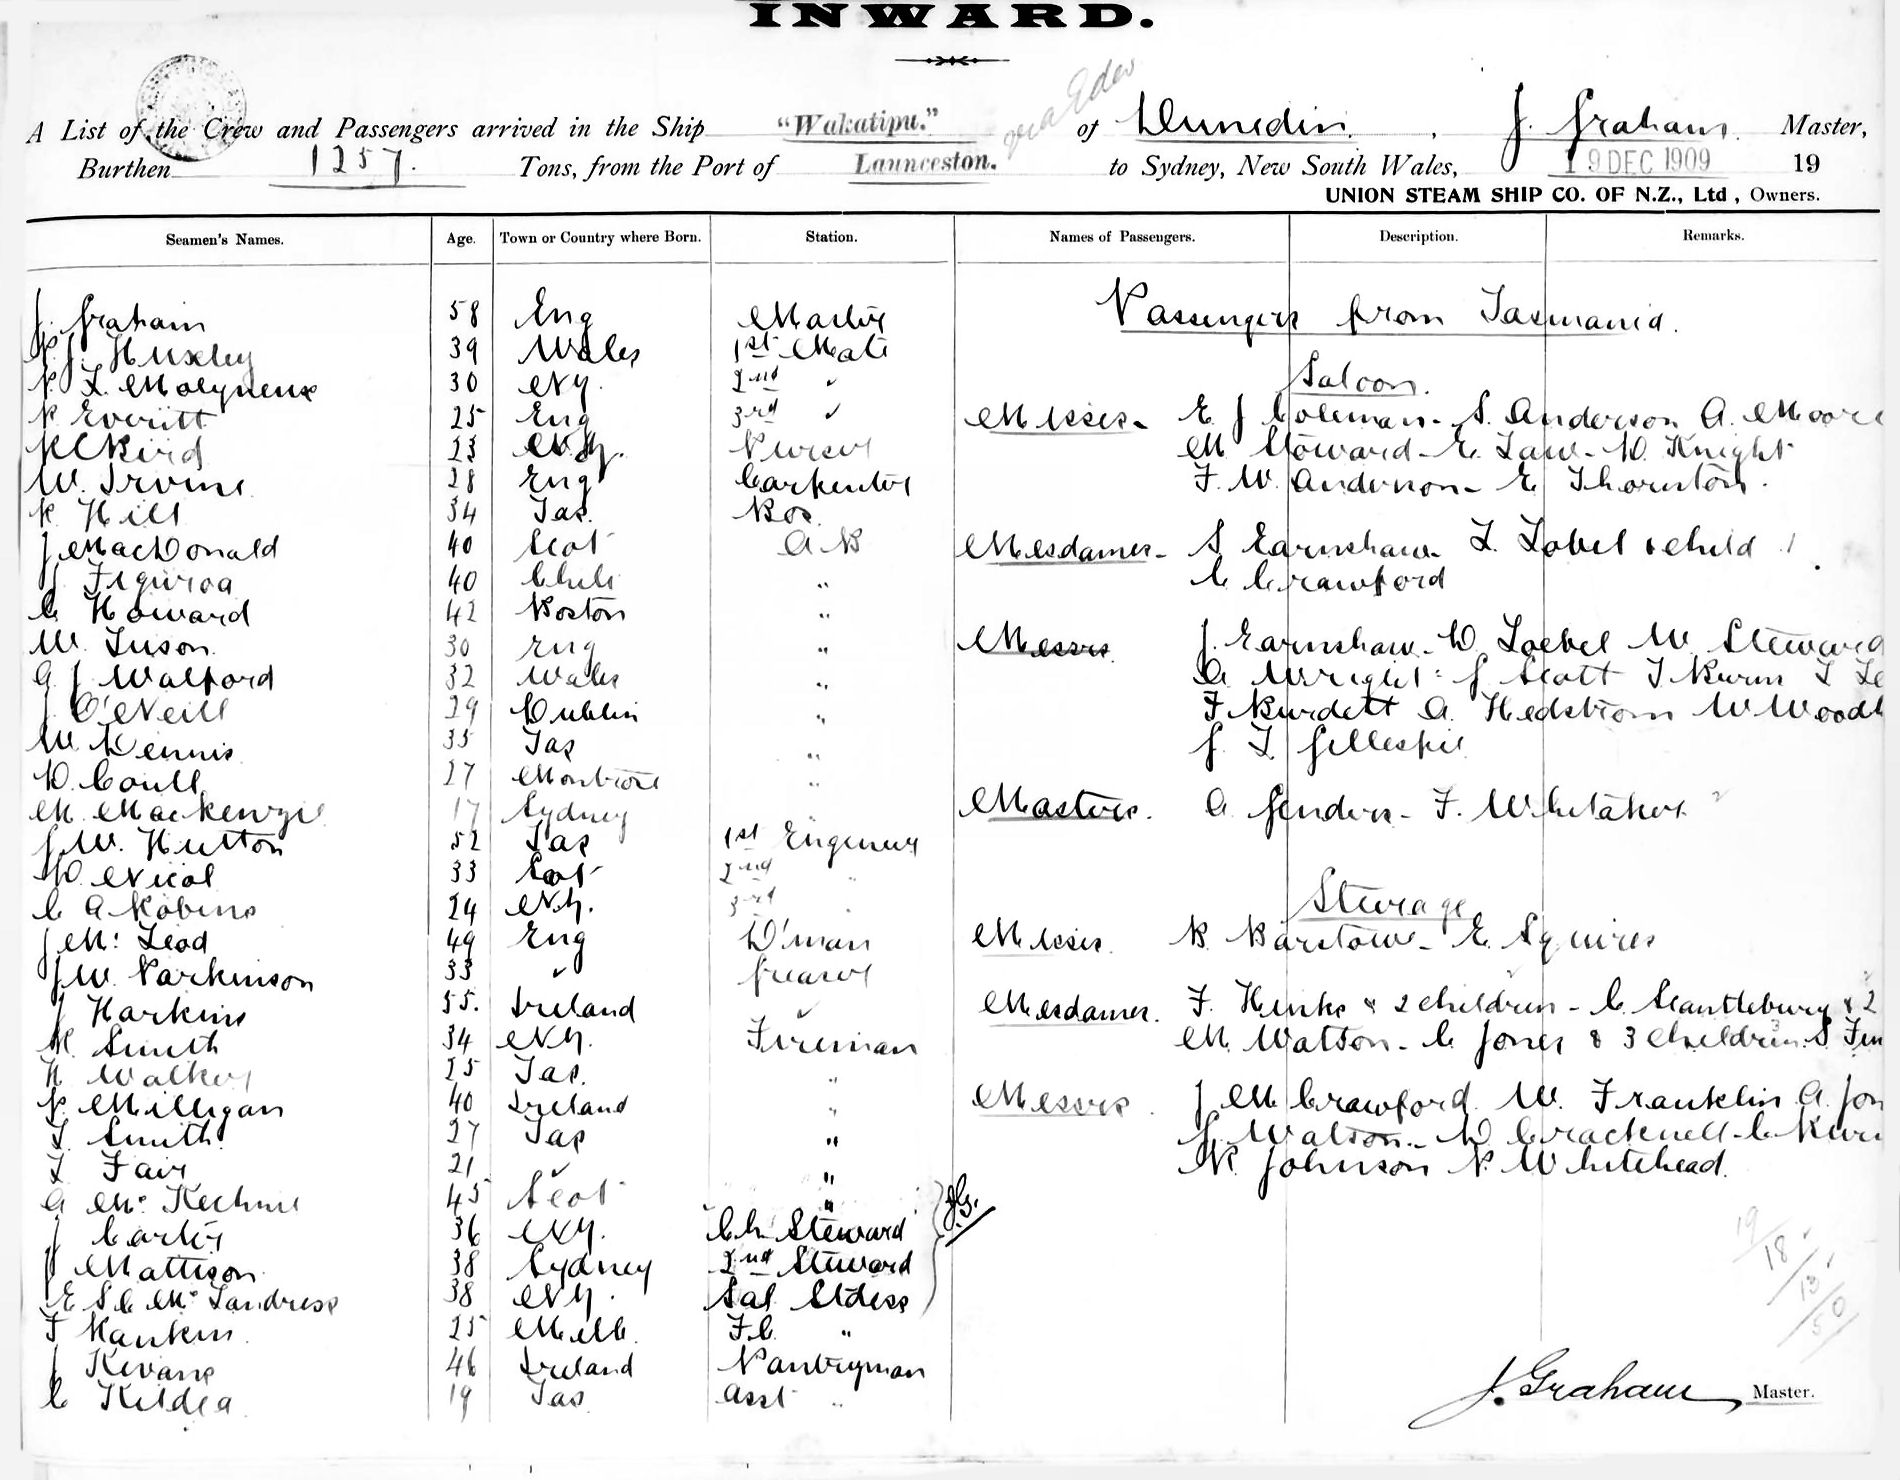 INWARD.
via Eden
A List of the Crew and Passengers arrived in the Ship "Wakatipu." of Dunedin, J. Graham. Master,
Burthen 1257. Tons, from the Port of Launceston. to Sydney, New South Wales, 19 DEC 1909 19
UNION STEAM SHIP CO. OF N.Z., Ltd, Owners.
Seamen's Names. Age. Town or Country where Born. Station. Names of Passengers. Description. Remarks.
J. Graham 58 Eng Master
Huxley 39 Wales 1st Mate
L. Molyneux 30 NZ. 2nd "
Everitt 25 Eng 3rd "
Bird 23 NZ. Purser
W. Irvine 28 Eng Carpenter
R. Hill 34 Tas. Bos.
J MacDonald 40 Scot A B
J. Figuroa 40 Chili "
C. Howard 42 Boston "
W. Tuson. 30 Eng "
A J Walford 32 Wales "
J O'Neill 29 Dublin "
W. Dennis 35 Tas "
D. Coull 27 Montrose "
M. Mackenzie 17 Sydney
J. W. Hutton 52 Tas 1st Engineer
D. Nicol 33 Scot 2nd "
C A Robins 24 NZ. 3rd "
J Mc Leod 49 Eng D'man
J W. Parkinson 33 " Greaser
J Harkins 55. Ireland "
R. Smith 34 NZ. Fireman
H Walker 25 Tas. "
P. Milligan 40 Ireland "
T. Smith 27 Tas "
L Fair 21 " "
A Mc Kechnie 45 Scot "
J Carter 36 NZ. Ch. Steward
J Mattison 38 Sydney 2nd Steward
E S C Mc Landress 38 NZ. Sal Stdess
J.G.
F Rankin. 25 Melb. F.C. "
J Kevans 46 Ireland Pantryman
C Kildea 19 Tas. Asst "
Passengers from Tasmania.
Saloon.
Misses - E J Coleman - S. Anderson A. Moore
M Stoward - E. Law - D. Knight
F. W. Anderson - E Thornton.
Mesdames - S Earnshaw - L. Lobel & child 1
C Crawford
Messrs J. Earnshaw - D Loebel W Steward
A Wright - J Scott T Burn L
F Burdett A. Hedstrom W
J. L Gillespie
Masters. A Genders - F. Whitaker
Steerage
Misses. B. Barstow - E Squires
Mesdames. F. Hinks & 2 children - C Scantlebury & 2
M. Watson - C Jones & 3 children S
Messrs. J M Crawford. W. Franklin A.
J. Watson - D Cracknell - C
R. Johnson P. Whitehead.
19/18/13/50
J. Graham Master.